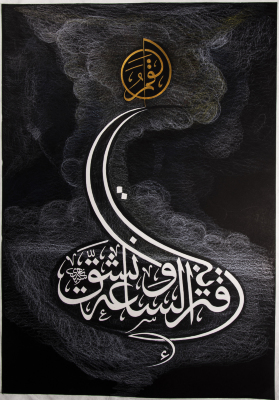 اقتربت الساعة وانشق
القمر